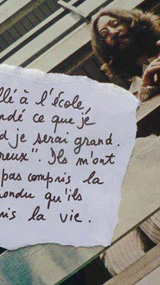 llé à l'école,
ndé ce que je
d je serai grand.
reux". Ils m'ont
pas compris la
ondu qu'ils
ris la vie.